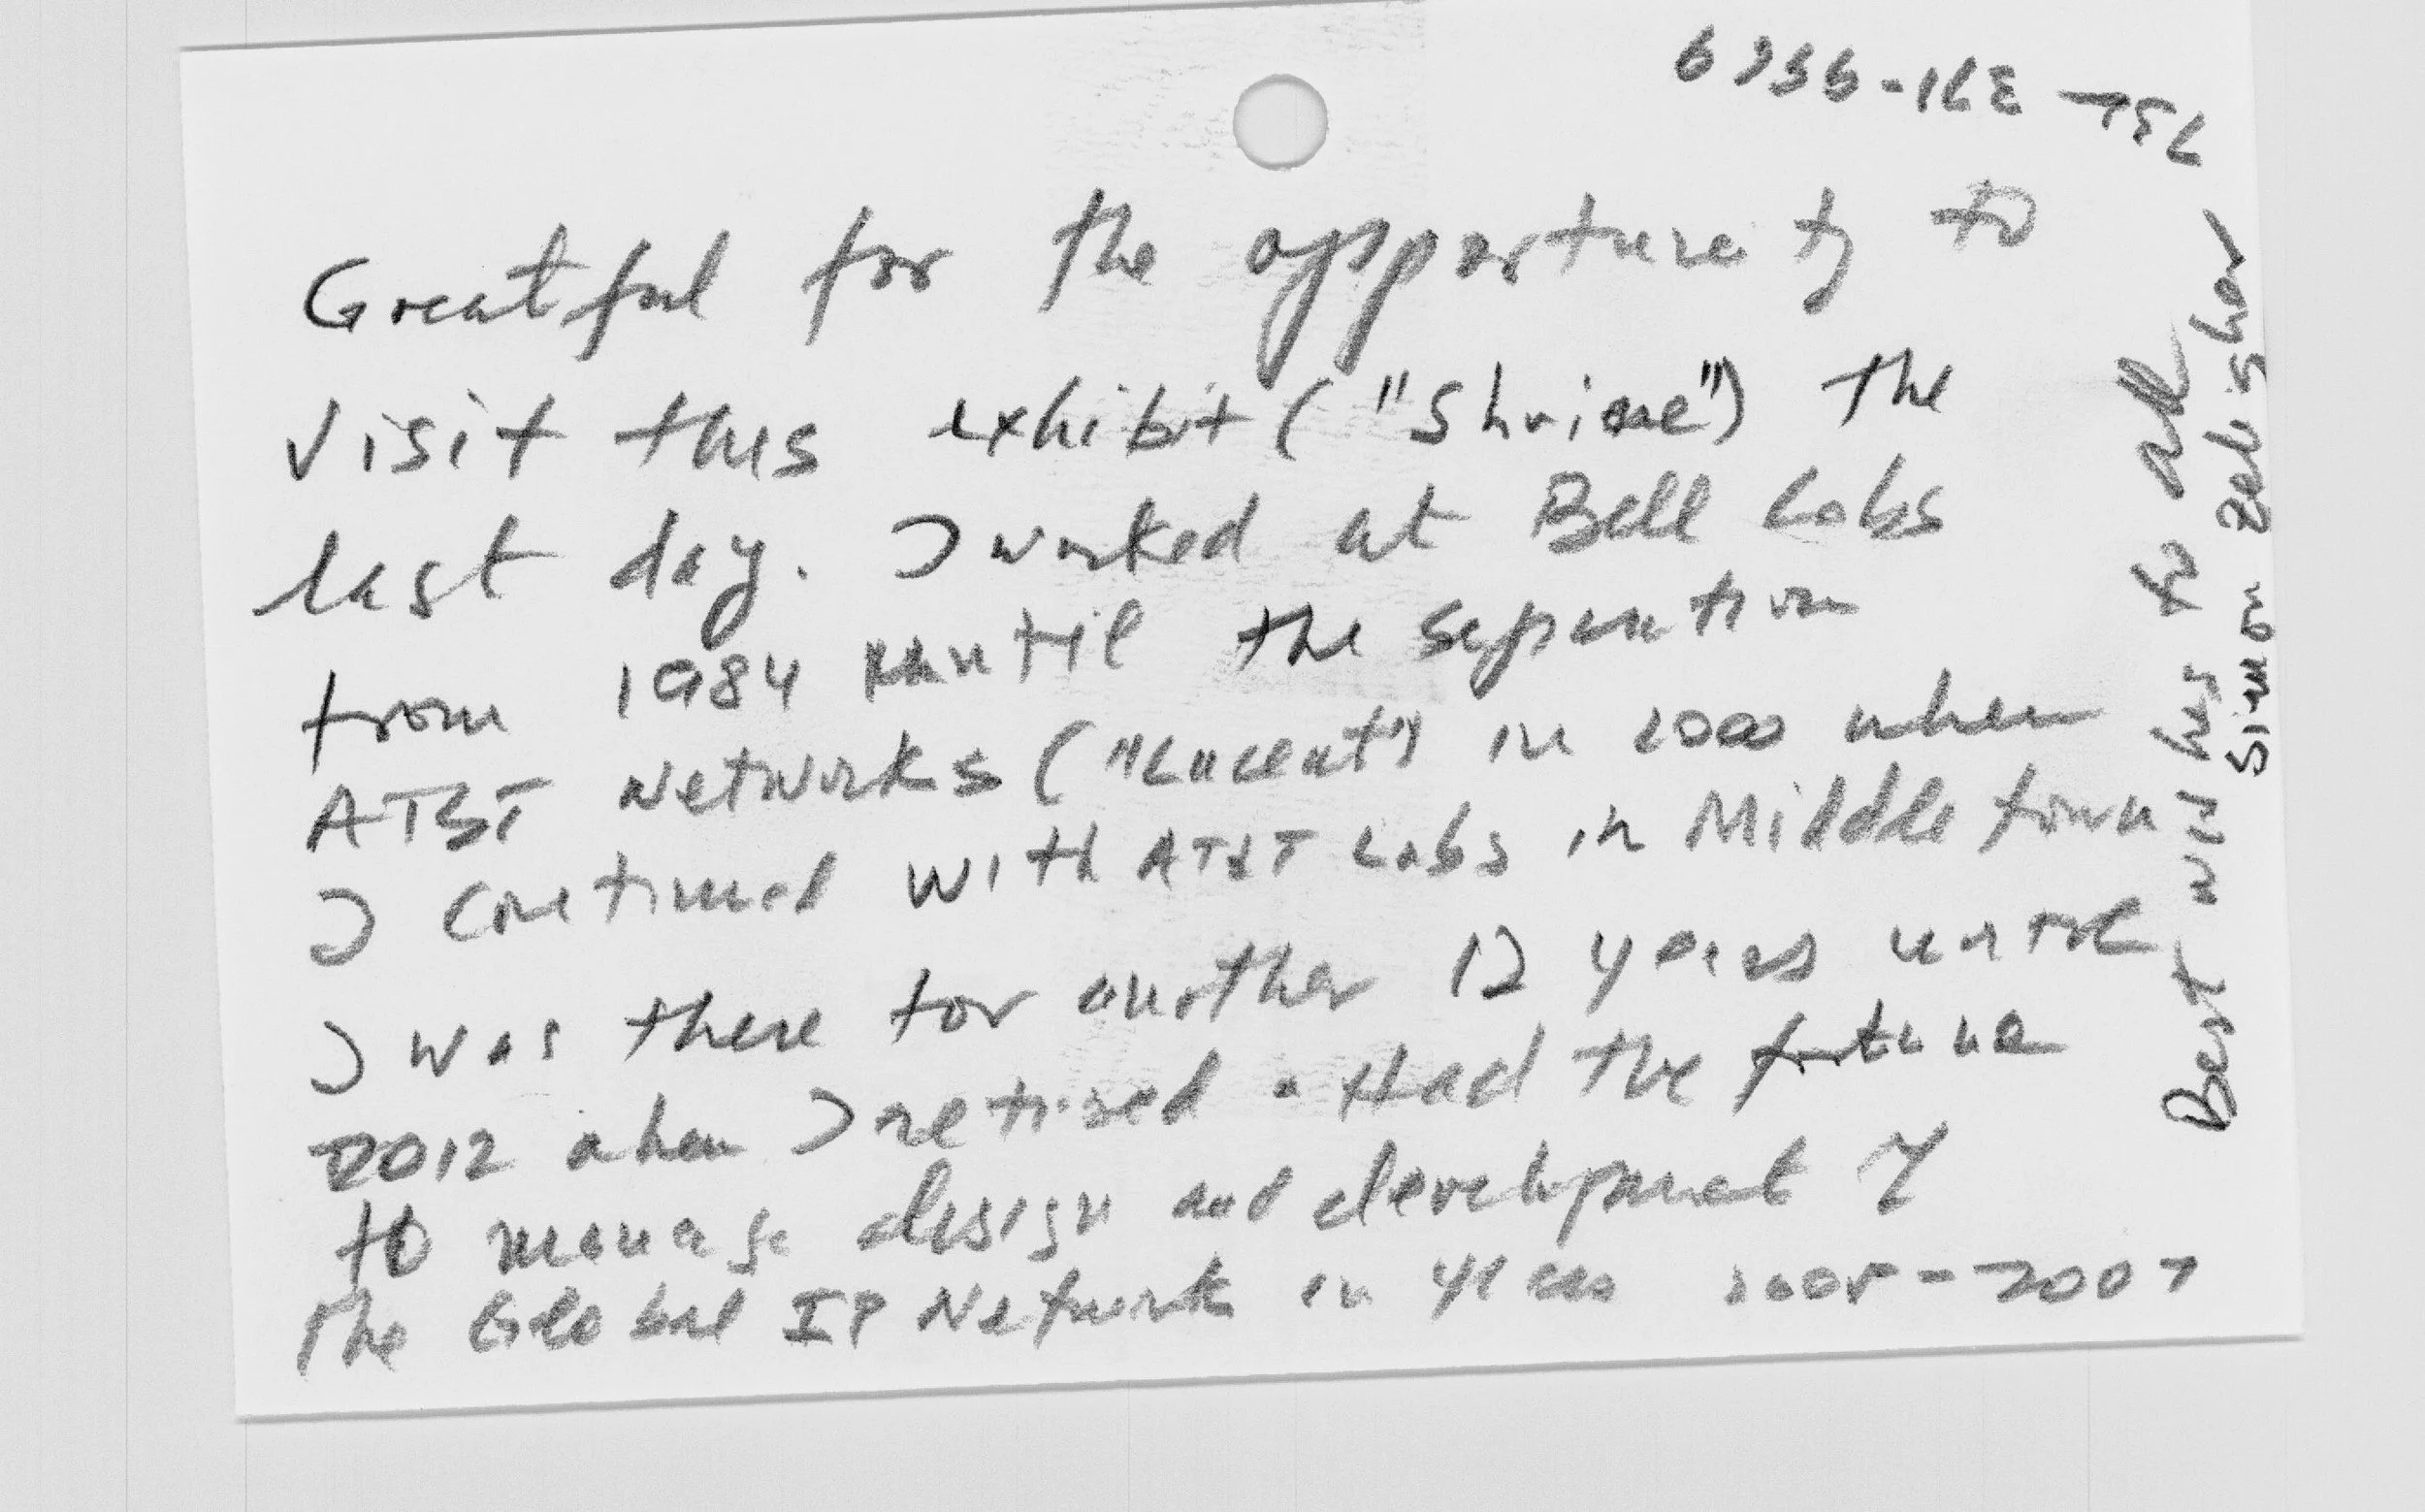 Grateful for the opportunity to
visit this exhibit ("Shrine") the
last day. I worked at Bell Labs
from 1984 until the separation
AT&T Networks ("Lucent") in 2000 when
I continued with AT&T Labs in Middletown
I was there for another 12 years until
2012 when I retired. Had the fortune
to manage design and development of
the Global IP Network in years 2005-2007
Best wishes to all
Simon Zelisher